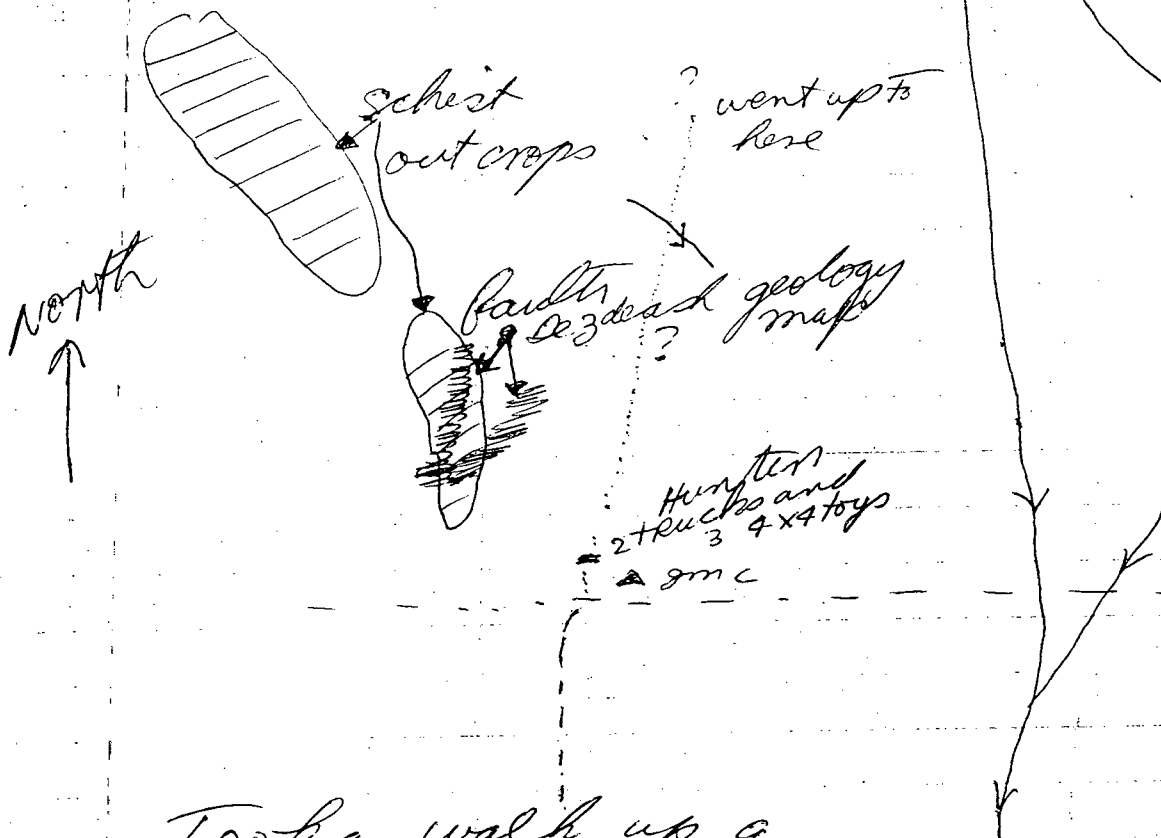 schist
out crops
? went up to
here
North
faults
Dezdeash geology
map
?
Hunters
2 trucks and
3 4x4 toys
gmc
Took a walk up a